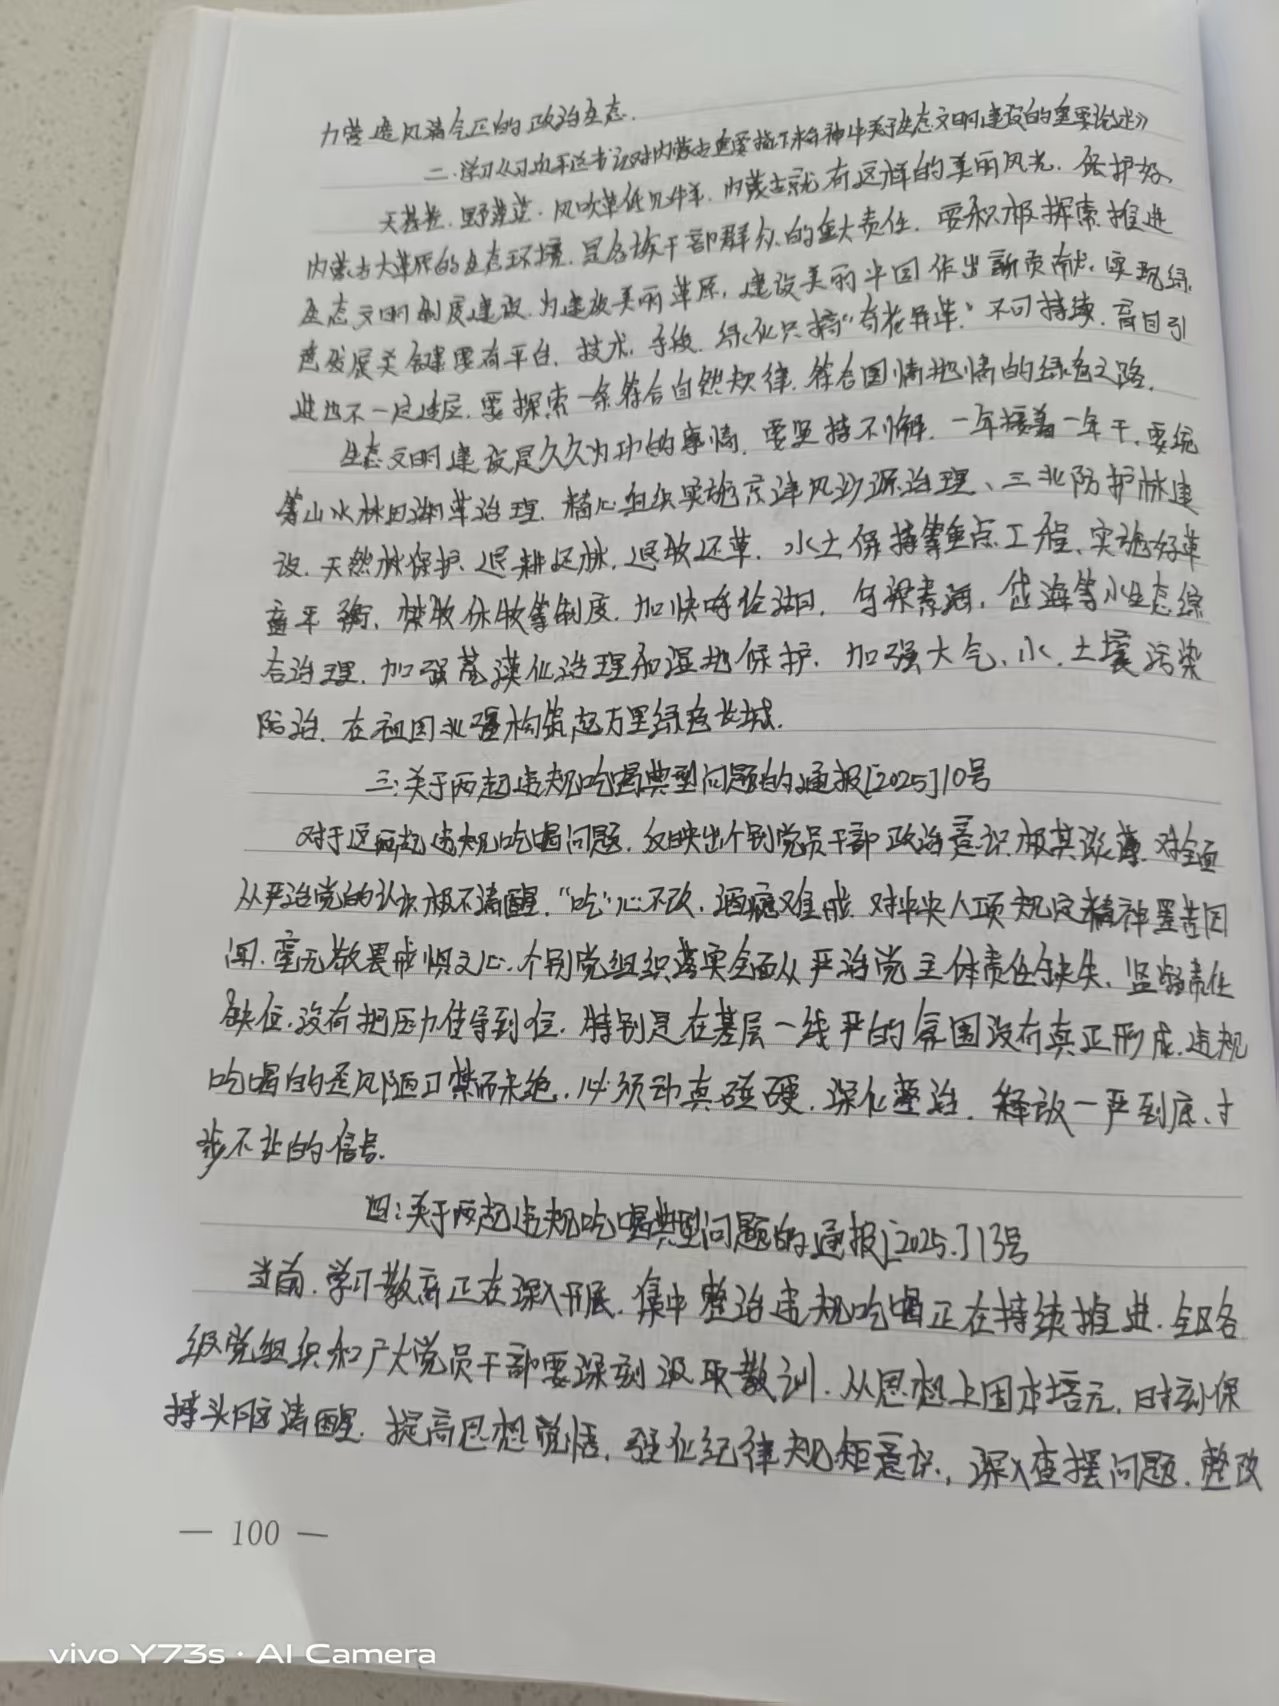 力营造风清气正的政治生态.
二.学习《习近平总书记对内蒙古重要指示精神中关于生态文明建设的重要论述》
天苍苍.野茫茫.风吹草低见牛羊.内蒙古就有这样的美丽风光.保护好
内蒙古大草原的生态环境.是各族干部群众的重大责任.要积极探索推进
生态文明制度建设.为建设美丽草原,建设美丽中国作出新贡献.实现绿
色发展关键要有平台.技术.手段.绿化只搞“奇花异草”不可持续.盲目引
进也不一定适应.要探索一条符合自然规律.符合国情地情的绿色之路.
生态文明建设是久久为功的事情,要坚持不懈.一年接着一年干.要统
筹山水林田湖草治理.精心组织实施京津风沙源治理、三北防护林建
设.天然林保护.退耕还林.退牧还草.水土保持等重点工程.实施好草
畜平衡、禁牧休牧等制度.加快呼伦湖.乌梁素海.岱海等水生态综
合治理.加强荒漠化治理和湿地保护.加强大气、水.土壤污染
防治.在祖国北疆构筑起万里绿色长城.
三:关于两起违规吃喝典型问题的通报[2025]10号
对于这两起违规吃喝问题.反映出个别党员干部政治意识极其淡薄.对全面
从严治党的认识极不清醒.“吃”心不改.酒瘾难戒.对中央八项规定精神置若罔
闻.毫无敬畏戒惧之心.个别党组织落实全面从严治党主体责任缺失.监督责任
缺位.没有把压力传导到位.特别是在基层一线严的氛围没有真正形成.违规
吃喝的歪风陋习禁而未绝.必须动真碰硬.深化整治.释放一严到底、寸
步不让的信号.
四:关于两起违规吃喝典型问题的通报[2025]13号
当前.学习教育正在深入开展.集中整治违规吃喝正在持续推进.全区各
级党组织和广大党员干部要深刻汲取教训.从思想上固本培元,时刻保
持头脑清醒.提高思想觉悟,强化纪律规矩意识,深入查摆问题.整改
— 100 —
vivo Y73s · AI Camera